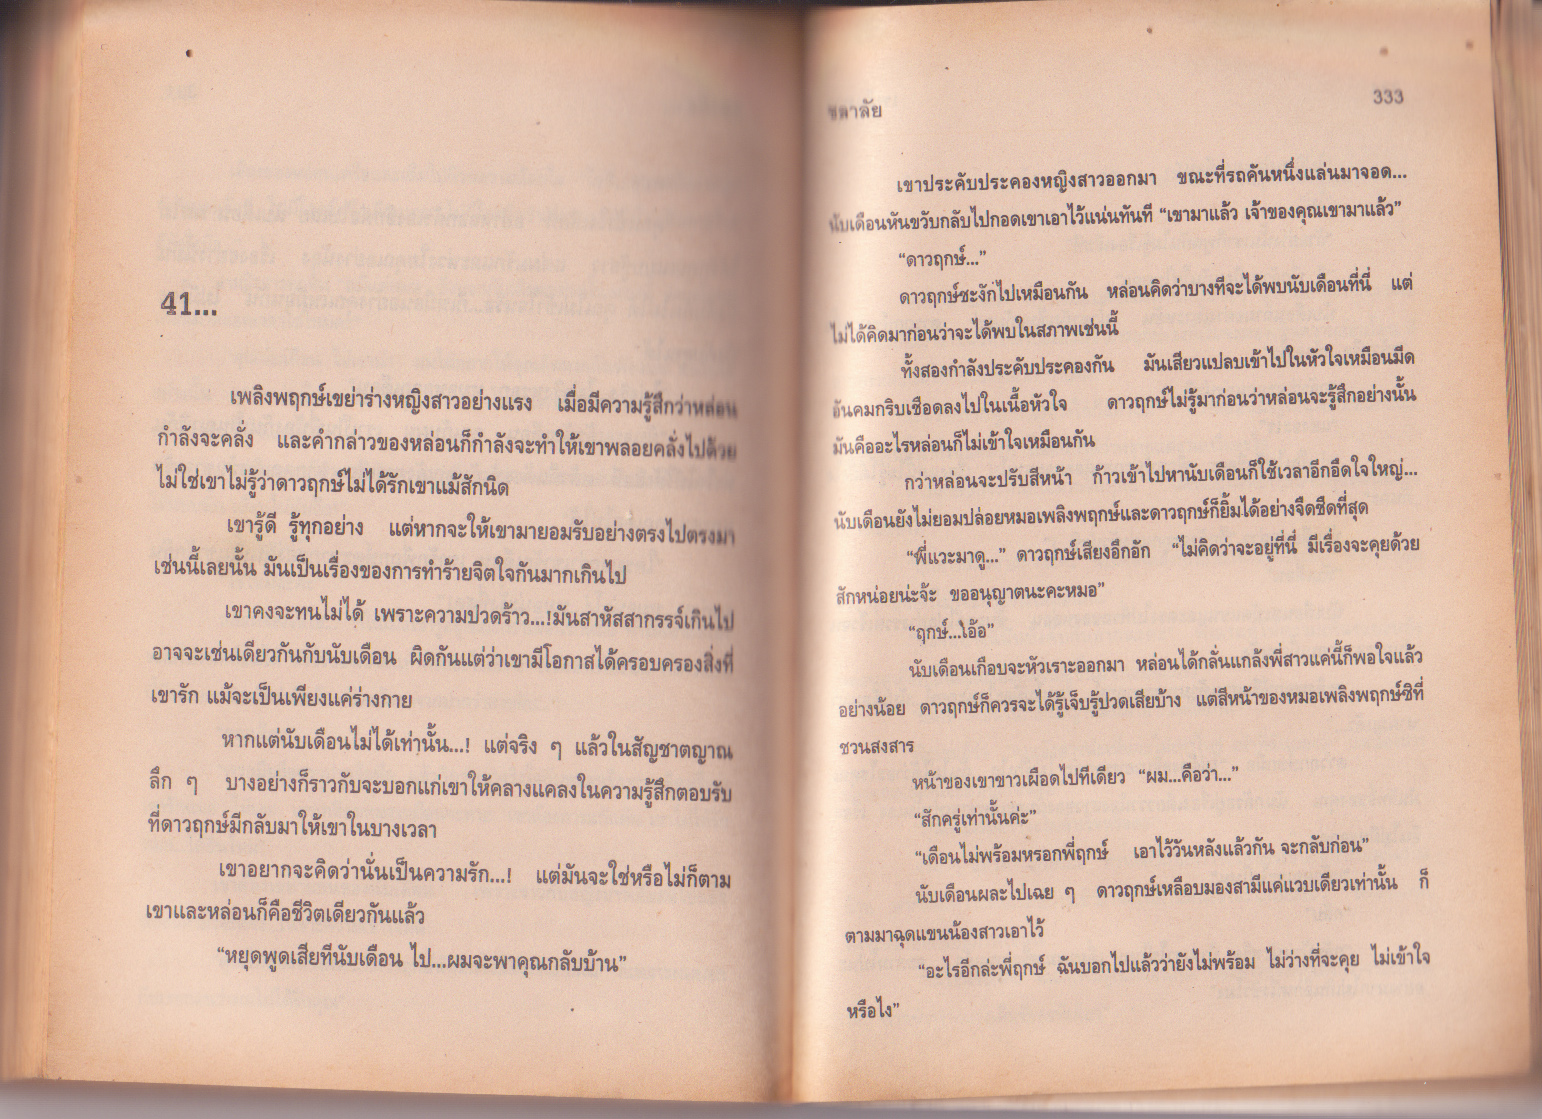 41...
เพลิงพฤกษ์เขย่าร่างหญิงสาวอย่างแรง เมื่อมีความรู้สึกว่าหล่อน
กำลังจะคลั่ง และคำกล่าวของหล่อนก็กำลังจะทำให้เขาพลอยคลั่งไปด้วย
ไม่ใช่เขาไม่รู้ว่าดาวฤกษ์ไม่ได้รักเขาแม้สักนิด
เขารู้ดี รู้ทุกอย่าง แต่หากจะให้เขามายอมรับอย่างตรงไปตรงมา
เช่นนี้เลยนั้น มันเป็นเรื่องของการทำร้ายจิตใจกันมากเกินไป
เขาคงจะทนไม่ได้ เพราะความปวดร้าว...!มันสาหัสสากรรจ์เกินไป
อาจจะเช่นเดียวกันกับนับเดือน ผิดกันแต่ว่าเขามีโอกาสได้ครอบครองสิ่งที่
เขารัก แม้จะเป็นเพียงแค่ร่างกาย
หากแต่นับเดือนไม่ได้เท่านั้น...! แต่จริง ๆ แล้วในสัญชาตญาณ
ลึก ๆ บางอย่างก็ราวกับจะบอกแก่เขาให้คลางแคลงในความรู้สึกตอบรับ
ที่ดาวฤกษ์มีกลับมาให้เขาในบางเวลา
เขาอยากจะคิดว่านั่นเป็นความรัก...! แต่มันจะใช่หรือไม่ก็ตาม
เขาและหล่อนก็คือชีวิตเดียวกันแล้ว
“หยุดพูดเสียทีนับเดือน ไป...ผมจะพาคุณกลับบ้าน”
ชลาลัย
333
เขาประคับประคองหญิงสาวออกมา ขณะที่รถคันหนึ่งแล่นมาจอด...
นับเดือนหันขวับกลับไปกอดเขาเอาไว้แน่นทันที “เขามาแล้ว เจ้าของคุณเขามาแล้ว”
“ดาวฤกษ์...”
ดาวฤกษ์ชะงักไปเหมือนกัน หล่อนคิดว่าบางทีจะได้พบนับเดือนที่นี่ แต่
ไม่ได้คิดมาก่อนว่าจะได้พบในสภาพเช่นนี้
ทั้งสองกำลังประคับประคองกัน มันเสียวแปลบเข้าไปในหัวใจเหมือนมีด
อันคมกริบเชือดลงไปในเนื้อหัวใจ ดาวฤกษ์ไม่รู้มาก่อนว่าหล่อนจะรู้สึกอย่างนั้น
มันคืออะไรหล่อนก็ไม่เข้าใจเหมือนกัน
กว่าหล่อนจะปรับสีหน้า ก้าวเข้าไปหานับเดือนก็ใช้เวลาอีกอึดใจใหญ่...
นับเดือนยังไม่ยอมปล่อยหมอเพลิงพฤกษ์และดาวฤกษ์ก็ยิ้มได้อย่างจืดชืดที่สุด
“พี่แวะมาดู...” ดาวฤกษ์เสียงอึกอัก “ไม่คิดว่าจะอยู่ที่นี่ มีเรื่องจะคุยด้วย
สักหน่อยน่ะจ้ะ ขออนุญาตนะคะหมอ”
“ฤกษ์...เอ้อ”
นับเดือนเกือบจะหัวเราะออกมา หล่อนได้กลั่นแกล้งพี่สาวแค่นี้ก็พอใจแล้ว
อย่างน้อย ดาวฤกษ์ก็ควรจะได้รู้เจ็บรู้ปวดเสียบ้าง แต่สีหน้าของหมอเพลิงพฤกษ์ซิที่
ชวนสงสาร
หน้าของเขาขาวเผือดไปทีเดียว “ผม...คือว่า...”
“สักครู่เท่านั้นค่ะ”
“เดือนไม่พร้อมหรอกพี่ฤกษ์ เอาไว้วันหลังแล้วกัน จะกลับก่อน”
นับเดือนผละไปเฉย ๆ ดาวฤกษ์เหลือบมองสามีแค่แวบเดียวเท่านั้น ก็
ตามมาฉุดแขนน้องสาวเอาไว้
“อะไรอีกล่ะพี่ฤกษ์ ฉันบอกไปแล้วว่ายังไม่พร้อม ไม่ว่างที่จะคุย ไม่เข้าใจ
หรือไง”